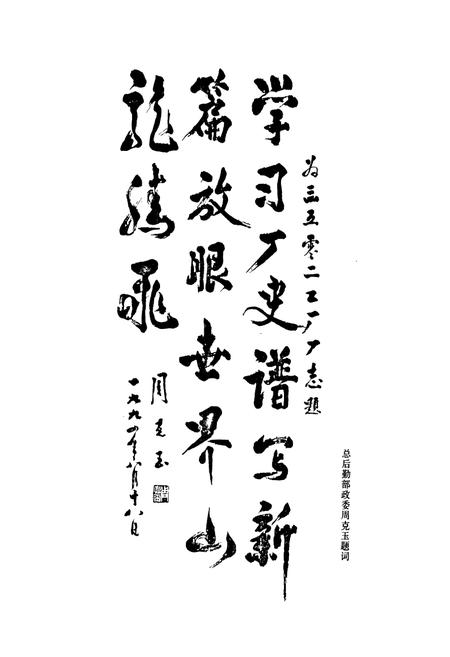 总后勤部政委周克玉题词
为三五零二工厂厂志题
学习厂史谱写新
篇放眼世界山
龍腾飛
周克玉
一九九四年八月十八日